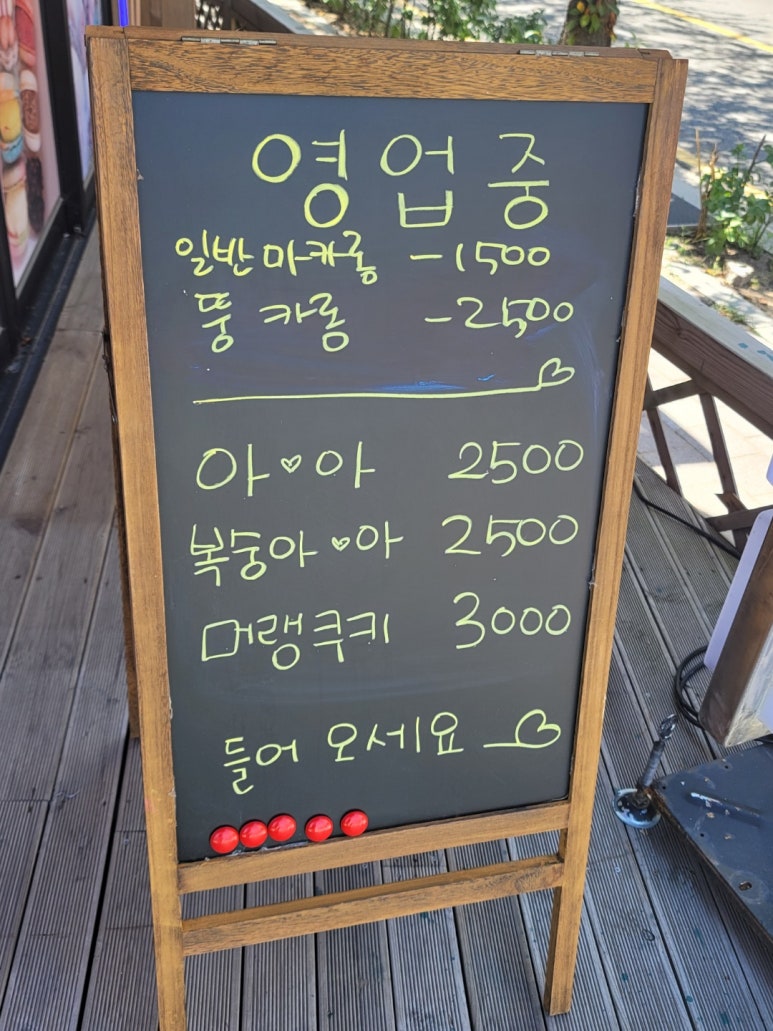 영업중
일반마카롱 -1500
뚱카롱 -2500
아♥아 2500
복숭아♥아 2500
머랭쿠키 3000
들어오세요